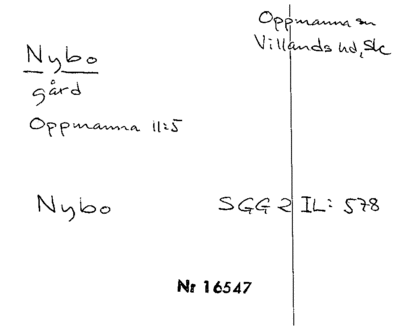 Oppmanna sn
Villands hd, Sk
Nybo
gård
Oppmanna 11:5
Nybo SGG 2 IL: 578
Nr 16547